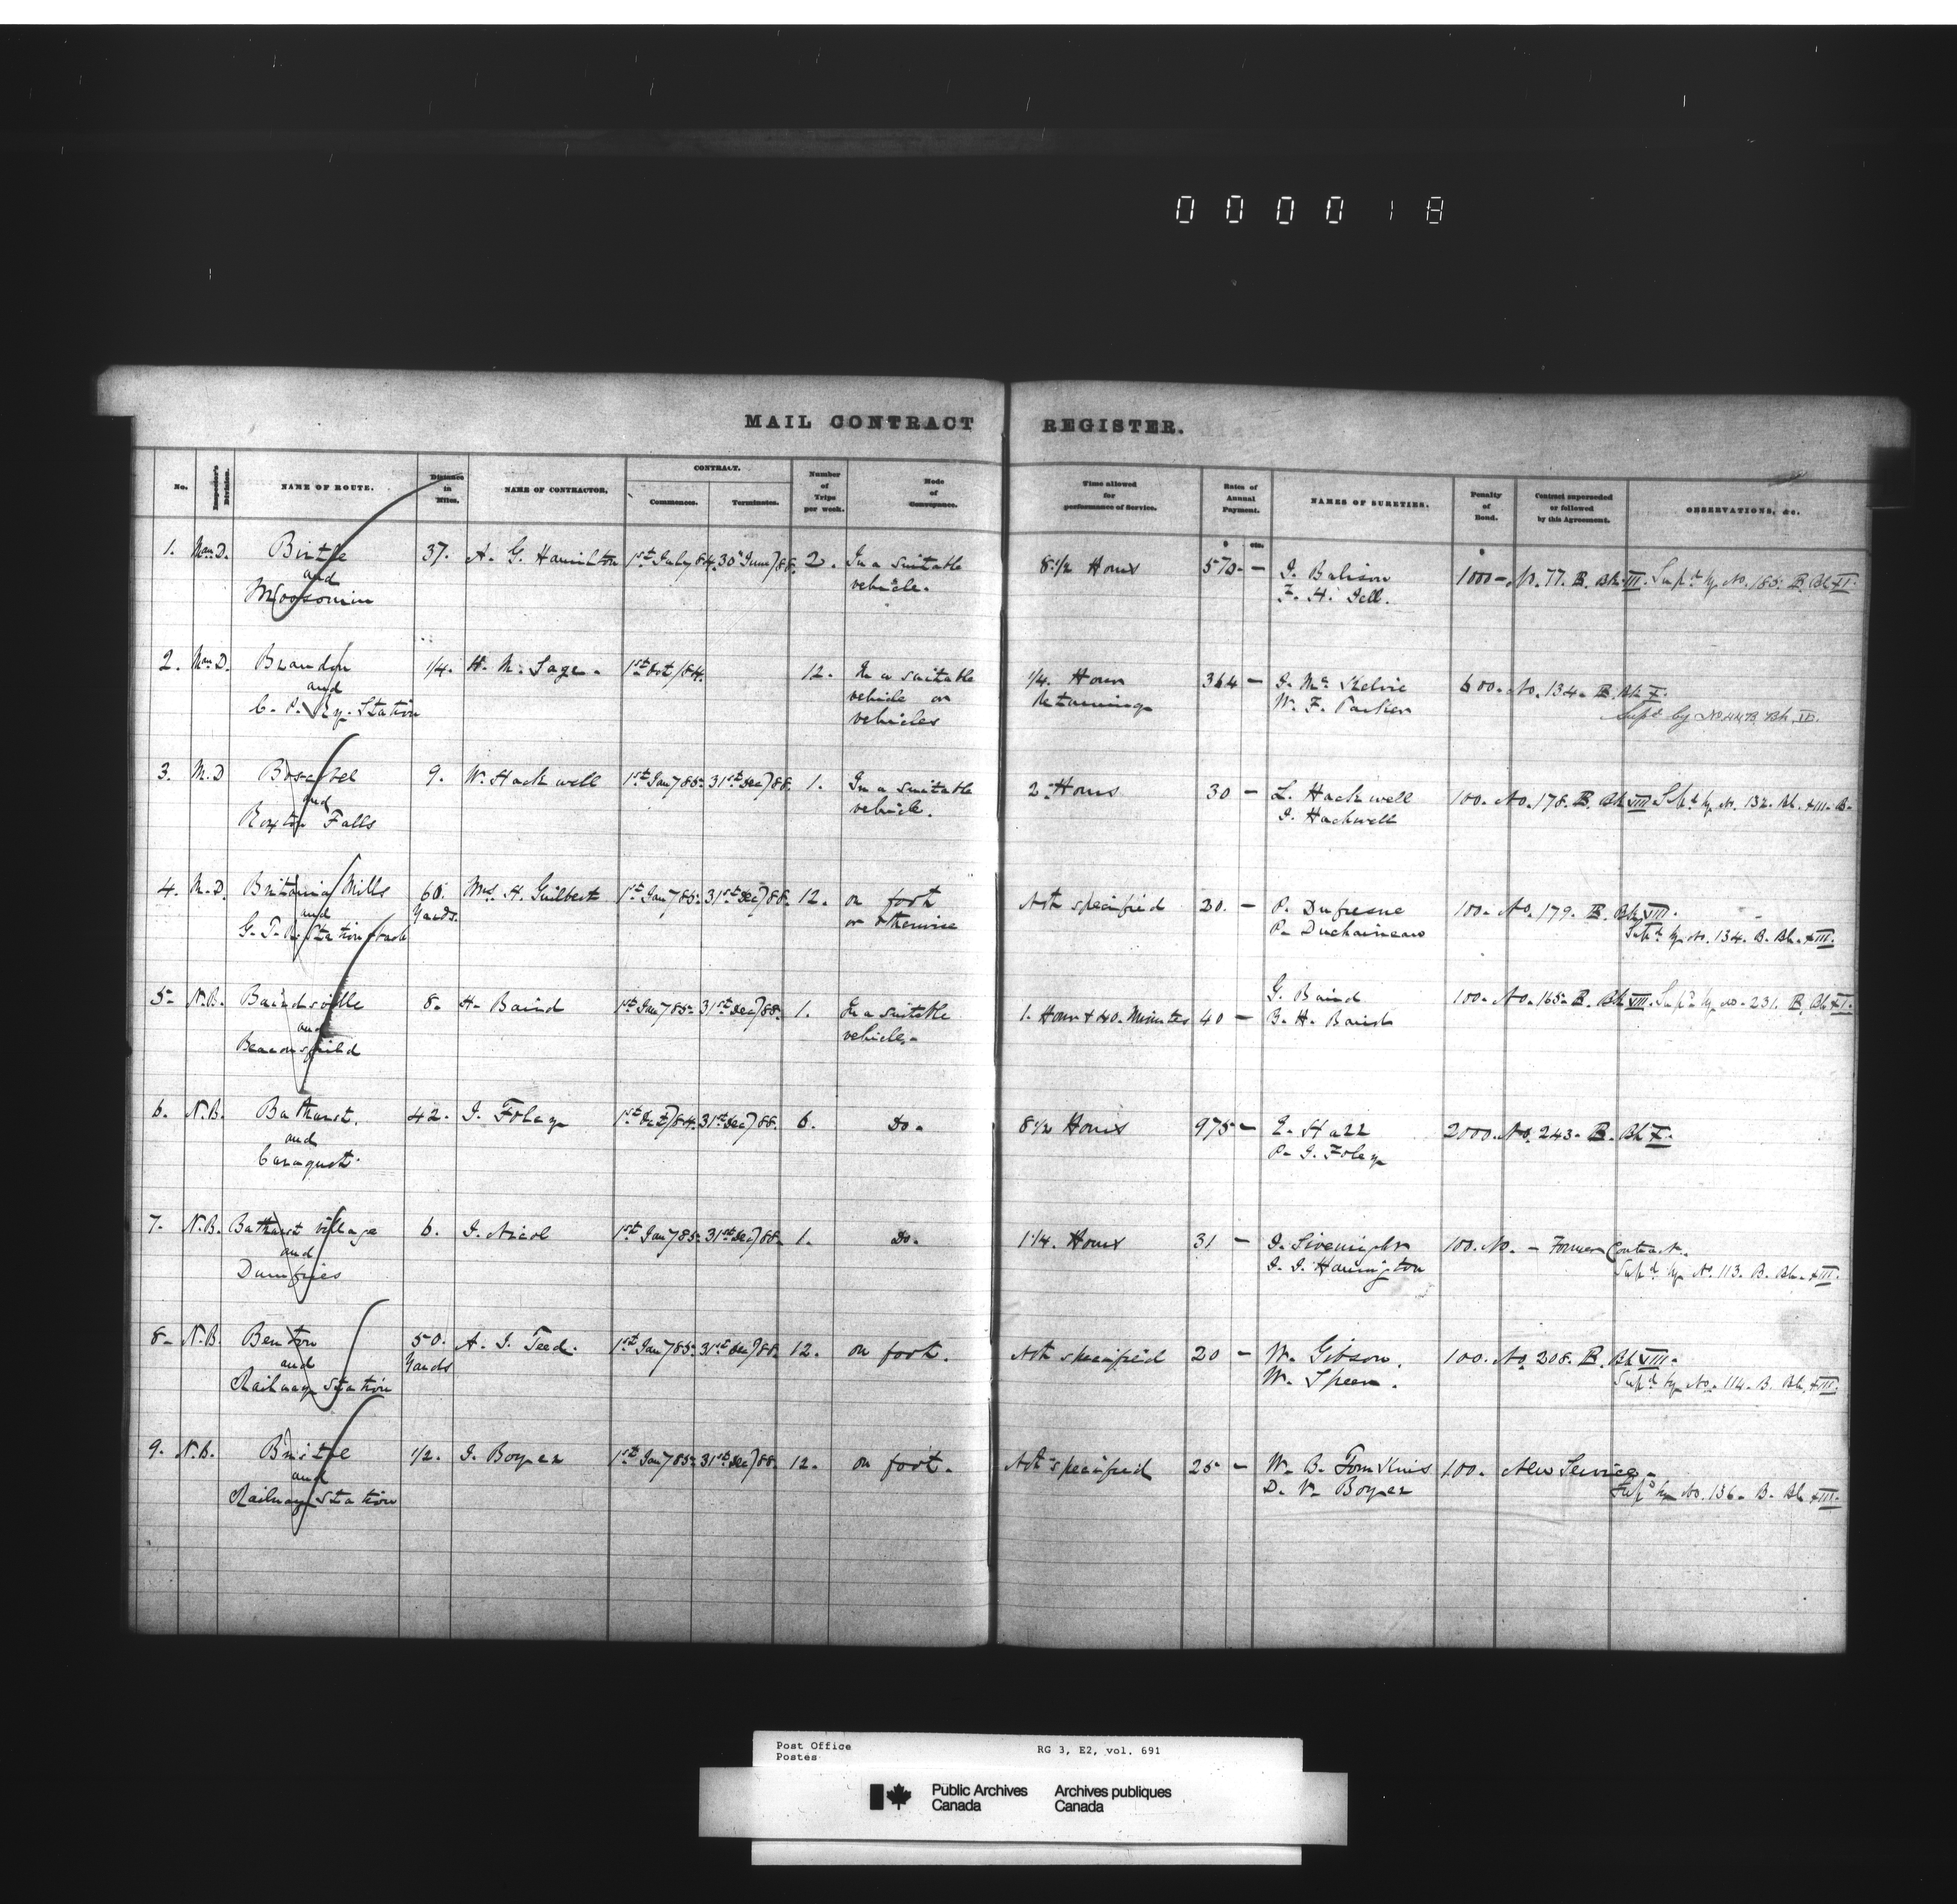 000018
MAIL CONTRACT REGISTER.
No. Inspector's Division. NAME OF ROUTE. Distance in Miles. NAME OF CONTRACTOR. CONTRACT. Commences. Terminates. Number of Trips per week. Mode of Conveyance. Time allowed for performance of Service. Rates of Annual Payment. $ cts. NAMES OF SURETIES. Penalty of Bond. $ Contract superseded or followed by this Agreement. OBSERVATIONS, &c.
1. Man. D. Birtle 37. A. G. Hamilton 1st July 84. 30th June/88. 2. In a suitable 8 1/2 Hours 570 - J. Balison 1000 - No. 77. B. Bk III. Supd by No. 185. B. Bk XI.
and vehicle. F. H. Tell.
Moosomin
2. Man. D. Brandon 1/4. H. M. Sage. 1st Oct/84. 12. In a suitable 1/4. Hour 364 - J. Mc Kelvie 600. No. 134. B. Bk X.
and vehicle or Returning W. F. Parker Supd by No 44 B. Bk
C. P. Ry. Station vehicles
3. M. D Boscobel 9. W. Hackwell 1st Jany 85. 31st Decr/88. 1. In a suitable 2 Hours 30 - L. Hackwell 100. No. 178. B. Bk VIII. Supd by No. 132. Bk. XIII. B.
and vehicle. J. Hackwell
Roxton Falls
4. M. D. Britannia Mills 60. Mrs. H. Guilbert 1st Jany 85. 31st Decr/88. 12. on foot Not specified 20. - P. Dufresne 100. No. 179. B. Bk VIII.
and Yards. or otherwise P. Duchaineau Supd by No. 134. B. Bk. XIII.
G. T. R. Station track
5. N.B. Bairdsville 8. H. Baird 1st Jany 85. 31st Decr/88. 1. In a suitable 1. Hour & 40. Minutes 40 - G. Baird 100. No. 165. B. Bk VIII. Supd by No. 231. B. Bk XI.
and vehicle. B. H. Baird
Beaconsfield
6. N.B. Bathurst. 42. J. Foley 1st Oct/84. 31st Decr/88. 6. Do. 8 1/2 Hours 975 - E. Hall 2000. No. 243. B. Bk X.
and P. J. Foley
Caraquet.
7. N.B. Bathurst village 6. J. Nicol 1st Jany 85. 31st Decr/88. 1. Do. 1 1/4. Hours 31 - J. 100. No. - Former Contract.
and J. J. Harrington Supd by No. 113. B. Bk. XIII.
Dumfries
8. N.B. Benton 50. A. J. Teed. 1st Jany 85. 31st Decr/88. 12. on foot. Not specified 20 - W. Gibson. 100. No. 208. B. Bk VIII.
and Yards W. Speer. Supd by No. 114. B. Bk. XIII.
Railway Station
9. N.B. Bristol 1/2. J. Boyer 1st Jany 85. 31st Decr/88. 12. on foot. Not specified 25 - W. B. Tomkins 100. New Service.
and D. V. Boyer Supd by No. 136. B. Bk XIII.
Railway Station
Post Office RG 3, E2, vol. 691
Postes
Public Archives Archives publiques
Canada Canada